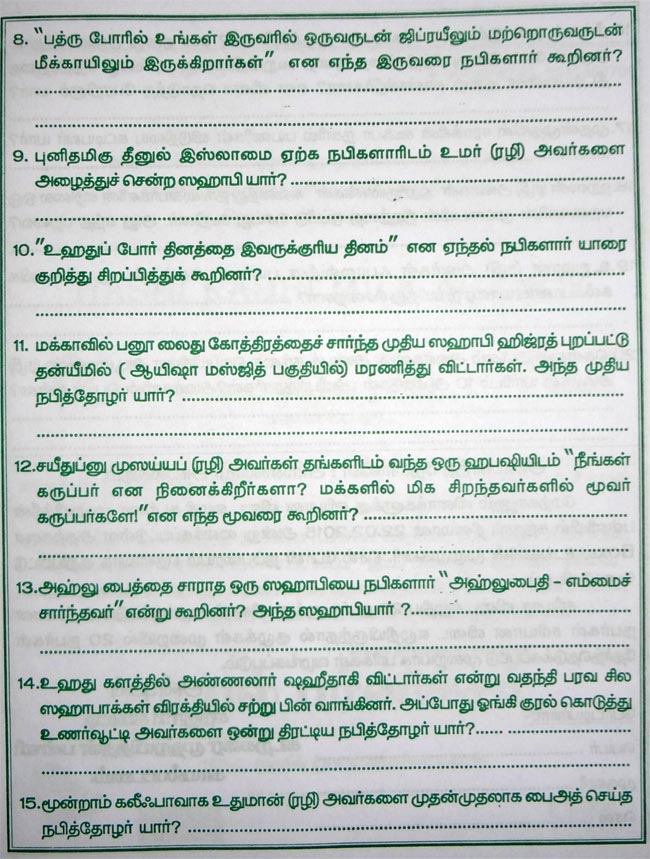 8. “பத்ரு போரில் உங்கள் இருவரில் ஒருவருடன் ஜிப்ரயீலும் மற்றொருவருடன்
மீக்காயிலும் இருக்கிறார்கள்” என எந்த இருவரை நபிகளார் கூறினர்?
9. புனிதமிகு தீனுல் இஸ்லாமை ஏற்க நபிகளாரிடம் உமர் (ரழி) அவர்களை
அழைத்துச் சென்ற ஸஹாபி யார்?
10.”உஹதுப் போர் தினத்தை இவருக்குரிய தினம்” என ஏந்தல் நபிகளார் யாரை
குறித்து சிறப்பித்துக் கூறினர்?
11. மக்காவில் பனூ லைது கோத்திரத்தைச் சார்ந்த முதிய ஸஹாபி ஹிஜ்ரத் புறப்பட்டு
தன்யீமில் ( ஆயிஷா மஸ்ஜித் பகுதியில்) மரணித்து விட்டார்கள். அந்த முதிய
நபித்தோழர் யார்?
12.சயீதுப்னு முஸய்யப் (ரழி) அவர்கள் தங்களிடம் வந்த ஒரு ஹபஷியிடம் “நீங்கள்
கருப்பர் என நினைக்கிறீர்களா? மக்களில் மிக சிறந்தவர்களில் மூவர்
கருப்பர்களே!”என எந்த மூவரை கூறினர்?
13.அஹ்லு பைத்தை சாராத ஒரு ஸஹாபியை நபிகளார் “அஹ்லுபைதி - எம்மைச்
சார்ந்தவர்”என்று கூறினர்? அந்த ஸஹாபியார் ?
14.உஹது களத்தில் அண்ணலார் ஷஹீதாகி விட்டார்கள் என்று வதந்தி பரவ சில
ஸஹாபாக்கள் விரக்தியில் சற்று பின் வாங்கினர். அப்போது ஓங்கி குரல் கொடுத்து
உணர்வூட்டி அவர்களை ஒன்று திரட்டிய நபித்தோழர் யார்?
15.மூன்றாம் கலீஃபாவாக உதுமான் (ரழி) அவர்களை முதன்முதலாக பைஅத் செய்த
நபித்தோழர் யார்?